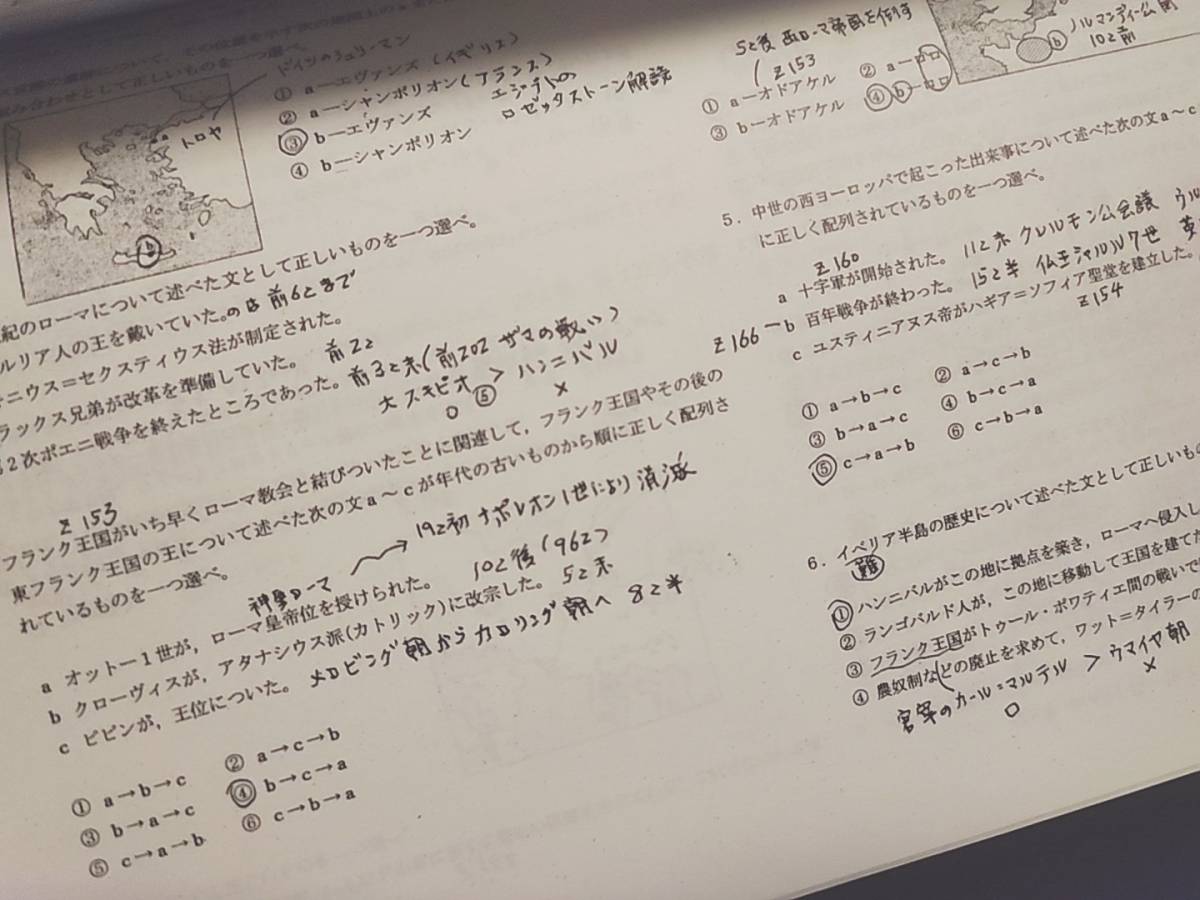 み合わせとして正しいものを一つ選べ。
ドイツのシュリーマン
トロヤ
b
① a－エヴァンズ(イギリス)
② a－シャンポリオン(フランス)
③ b－エヴァンズ
④ b－シャンポリオン
エジプトの
ロゼッタストーン解読
紀のローマについて述べた文として正しいものを一つ選べ。
ルリア人の王を戴いていた。のは前6Cまで
ニウス＝セクスティウス法が制定された。
ラックス兄弟が改革を準備していた。 前2C
第2次ポエニ戦争を終えたところであった。 前3C末(前202 ザマの戦い)
大スキピオ > ハンニバル
○ ⑤ ×
Z153
フランク王国がいち早くローマ教会と結びついたことに関連して，フランク王国やその後の
東フランク王国の王について述べた次の文a～cが年代の古いものから順に正しく配列さ
れているものを一つ選べ。
神聖ローマ → 19C初 ナポレオン1世により消滅
a オットー1世が，ローマ皇帝位を授けられた。 10C後(962)
b クローヴィスが，アタナシウス派(カトリック)に改宗した。 5C末
c ピピンが，王位についた。 メロビング朝からカロリング朝へ 8C半
① a→b→c ② a→c→b
③ b→a→c ④ b→c→a
⑤ c→a→b ⑥ c→b→a
5C後 西ローマ帝国を倒す
Z153
① a－オドアケル ② a－ロロ
③ b－オドアケル ④ b－ロロ
b ノルマンディー公国
10C前
5．中世の西ヨーロッパで起こった出来事について述べた次の文a～c
に正しく配列されているものを一つ選べ。
Z160
a 十字軍が開始された。 11C末 クレルモン公会議 ウル
Z166～b 百年戦争が終わった。 15C半 仏王シャルル7世 英
c ユスティニアヌス帝がハギア＝ソフィア聖堂を建立した。
Z154
① a→b→c ② a→c→b
③ b→a→c ④ b→c→a
⑤ c→a→b ⑥ c→b→a
6．イベリア半島の歴史について述べた文として正しいもの
難
① ハンニバルがこの地に拠点を築き，ローマへ侵入し
② ランゴバルド人が，この地に移動して王国を建てた
③ フランク王国がトゥール・ポワティエ間の戦いで
④ 農奴制などの廃止を求めて，ワット＝タイラーの
宮宰のカール＝マルテル > ウマイヤ朝
○ ×